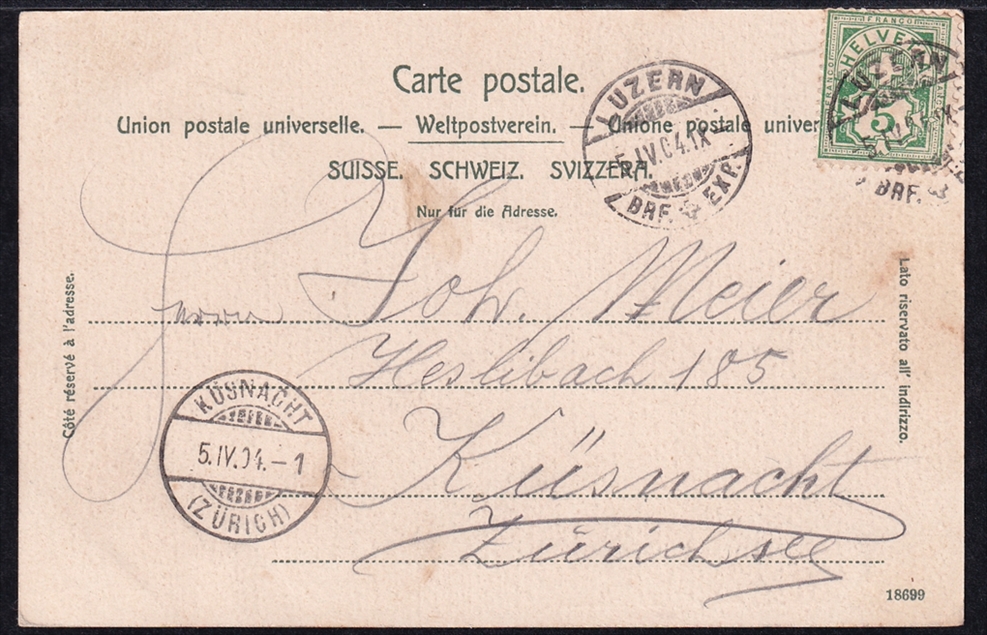 FRANCO
HELVETIA
FRANCO
FRANCO
5
Carte postale.
LUZERN
5.IV.04.IX
BRF. EXP.
LUZERN
5.IV.04.IX
BRF.
Union postale universelle. — Weltpostverein. — Unione postale univer
SUISSE. SCHWEIZ. SVIZZERA.
Nur für die Adresse.
Côté réservé à l'adresse.
Lato riservato all' indirizzo.
Herrn Joh. Meier
Heslibach 185
KÜSNACHT
5.IV.04.–1
(ZÜRICH)
Küsnacht
Zürichsee
18699